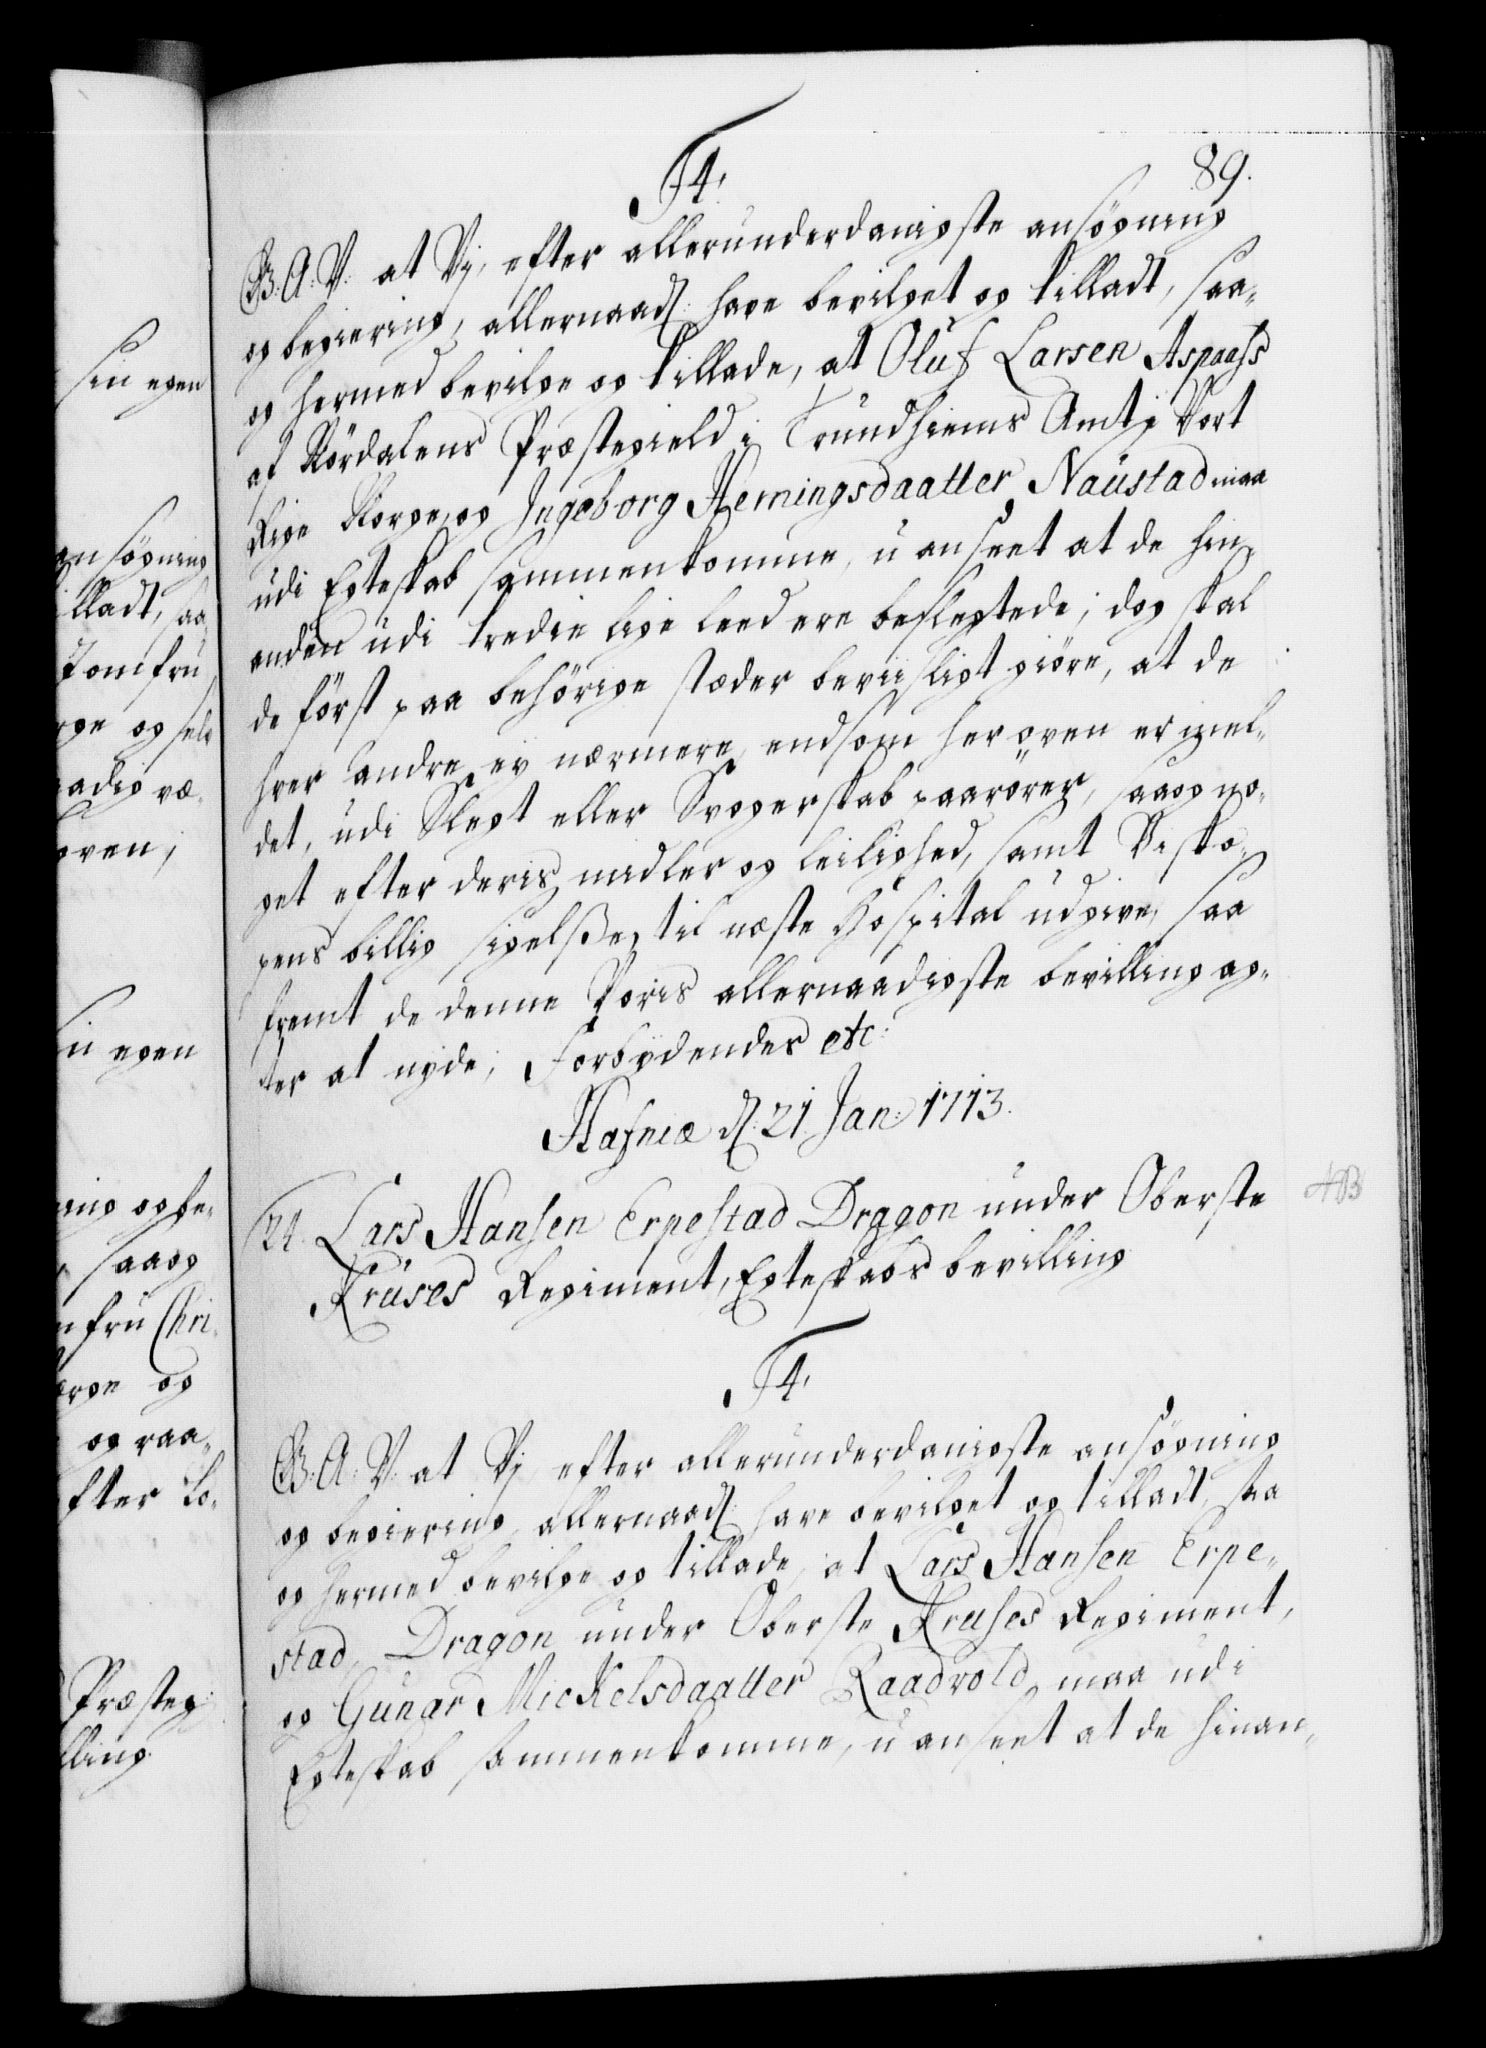 89.
F4.
G: A: V: at Vj, efter allerunderdanigste ansøgning
og begiering, allernaad: have bevilget og tilladt, saa-
og hermed bevilge og tillade, at Oluf Larsen Aspaass
af Nördalens Præstegield i Trundhiems Amt i Vort
Rige Norge, og Ingeborg Hemingsdaatter Naustad maa
udi Egteskab sammenkomme, uanseet at de hin
anden udi tredie lige leed ere beslegtede; dog skal
de först paa behörige stæder beviisligt giöre, at de
hver andre ey nærmere, endsom her oven er mel-
det, udi Slegt eller Svogerskab paarører, saa og no-
get efter deris midler og leilighed, samt Bisko-
pens billig sigelse, til næste Hospital udgive, saa
fremt de denne Voris allernaadigste bevilling ag-
ter at nyde; Forbydendes etc:
Hafniæ d: 21. Jan: 1713.
24. Lars Hansen Erpestad Dragon under Oberste
Kruses Regiment, Egteskabs bevilling
F4.
G: A: V: at Vj efter allerunderdanigste ansøgning
og begiering, allernaad: have bevilget og tilladt, saa
og hermed bevilge og tillade, at Lars Hansen Erpe-
stad, Dragon under Oberste Kruses Regiment,
og Gunar Mickelsdaatter Raadvold maa udi
Egteskab sammenkomme, uanseet at de hinan-
sin egen
ansøgning
lladt, saa
Jomfru
rge og selv
aadig væ-
oven;
in egen
ning og be-
saa og
mfru Chri-
orge og
og raa-
fter Lo-
Præsteg:
lling
AB